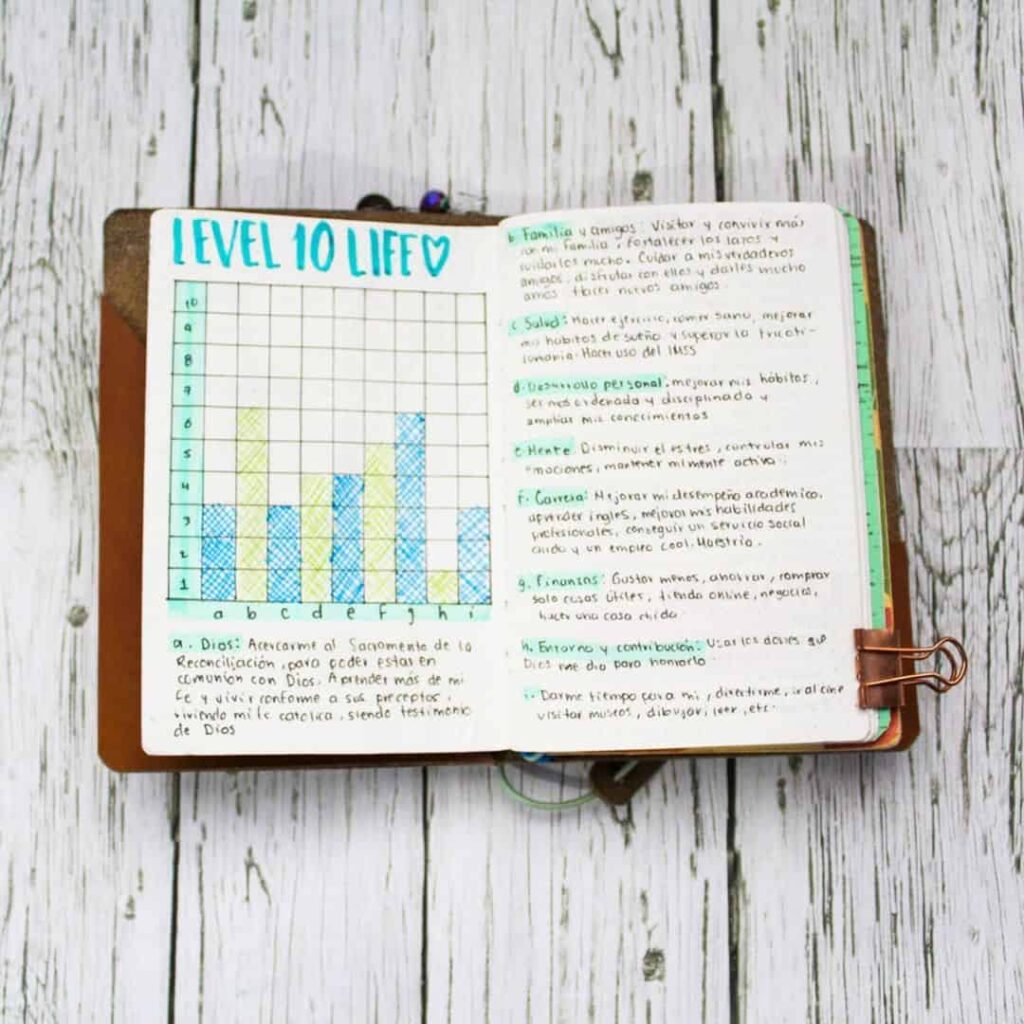 LEVEL 10 LIFE
10
9
8
7
6
5
4
3
2
1
a b c d e f g h i
a. Dios: Acercarme al Sacramento de la
Reconciliación, para poder estar en
comunión con Dios. Aprender más de mi
fe y vivir conforme a sus preceptos,
viviendo mi fe católica, siendo testimonio
de Dios
b. Familia y amigos: Visitar y convivir más
con mi familia, fortalecer los lazos y
cuidarlos mucho. Cuidar a mis verdaderos
amigos, disfrutar con ellos y darles mucho
amor. Hacer nuevos amigos.
c. Salud: Hacer ejercicio, comer sano, mejorar
mis hábitos de sueño y superar la tricoti-
lomanía. Hacer uso del IMSS
d. Desarrollo personal: mejorar mis hábitos,
ser más ordenada y disciplinada y
ampliar mis conocimientos
e. Mente: Disminuir el estres, controlar mis
emociones, mantener mi mente activa.
f. Carrera: Mejorar mi desempeño académico,
aprender ingles, mejorar mis habilidades
profesionales, conseguir un servicio social
chido y un empleo cool. Maestria.
g. Finanzas: Gastar menos, ahorrar, comprar
solo cosas útiles, tienda online, negocios,
hacer una casa chida.
h. Entorno y contribución: Usar los dones que
Dios me dio para honrarlo
i. Darme tiempo para mi, divertirme, ir al cine
visitar museos, dibujar, leer, etc.